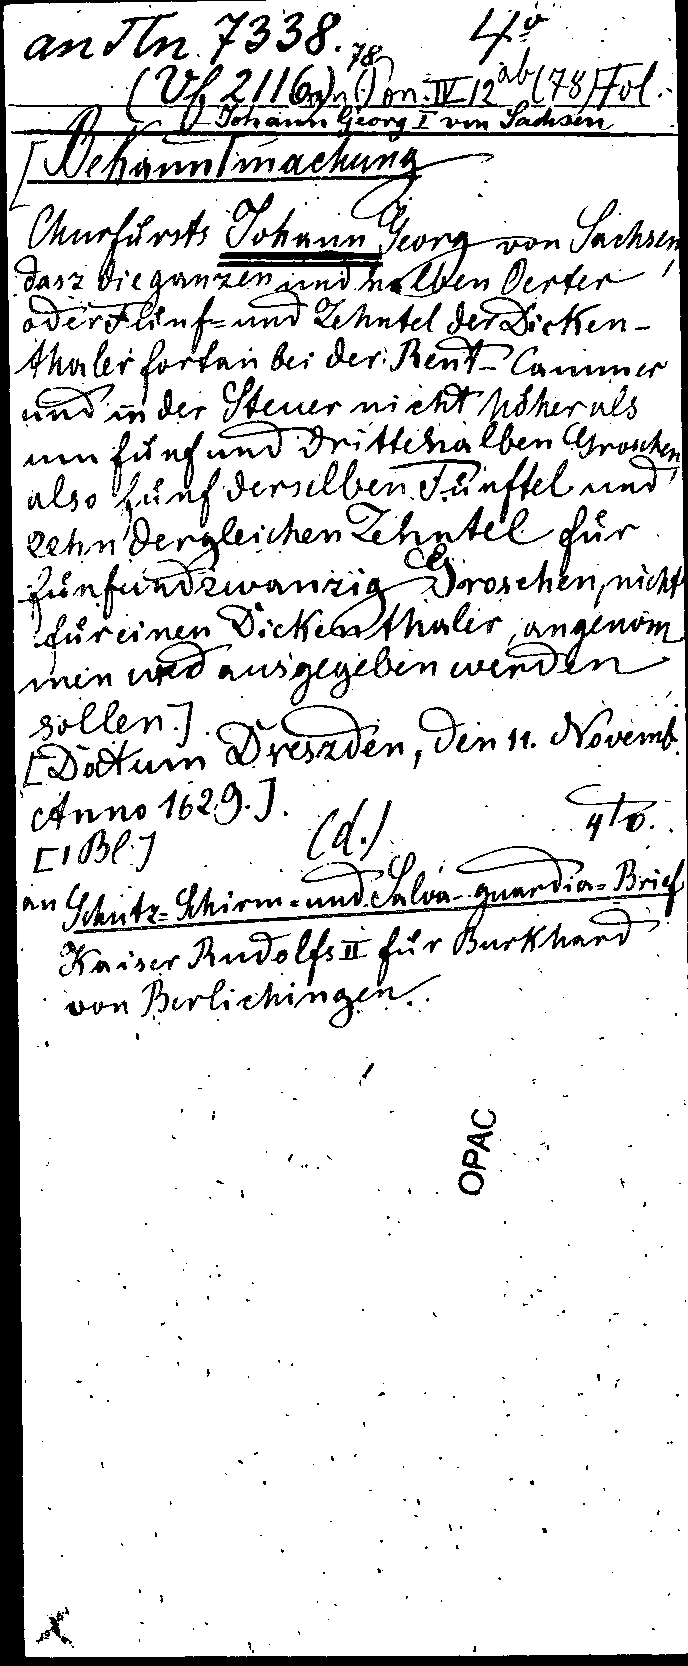 an Tn 7338. 4°
78
(Vf 2116 IV 12 ab (78) Fol.
Johann Georg I von Sachsen
[Bekanntmachung
Churfürsts Johann Georg von Sachsen,
dasz die ganzen und halben Oerter
oder Fünf= und Zehntel der Dicken-
thaler fortan bei der Rent-Cammer
und in der Steuer nicht höher als
um fünf und drittehalben Groschen,
also fünf derselben Fünftel und
zehn dergleichen Zehntel für
fünfundzwanzig Groschen, nicht
für einen Dickenthaler, angenom
men und ausgegeben werden
sollen.]
[Datum Dreszden, den 11. Novemb.
Anno 1629.].
[1 Bl.] (d.) 4to.
an Schutz=Schirm=und Salva-guardia=Brief
Kaiser Rudolfs II für Burkhard
von Berlichingen.
OPAC